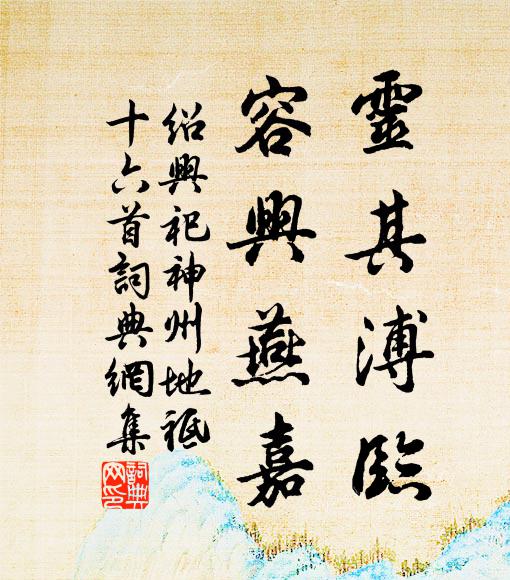 靈其溥臨
容興燕嘉
紹興祀神州地祇
十六首詞典網集
詞典
网印